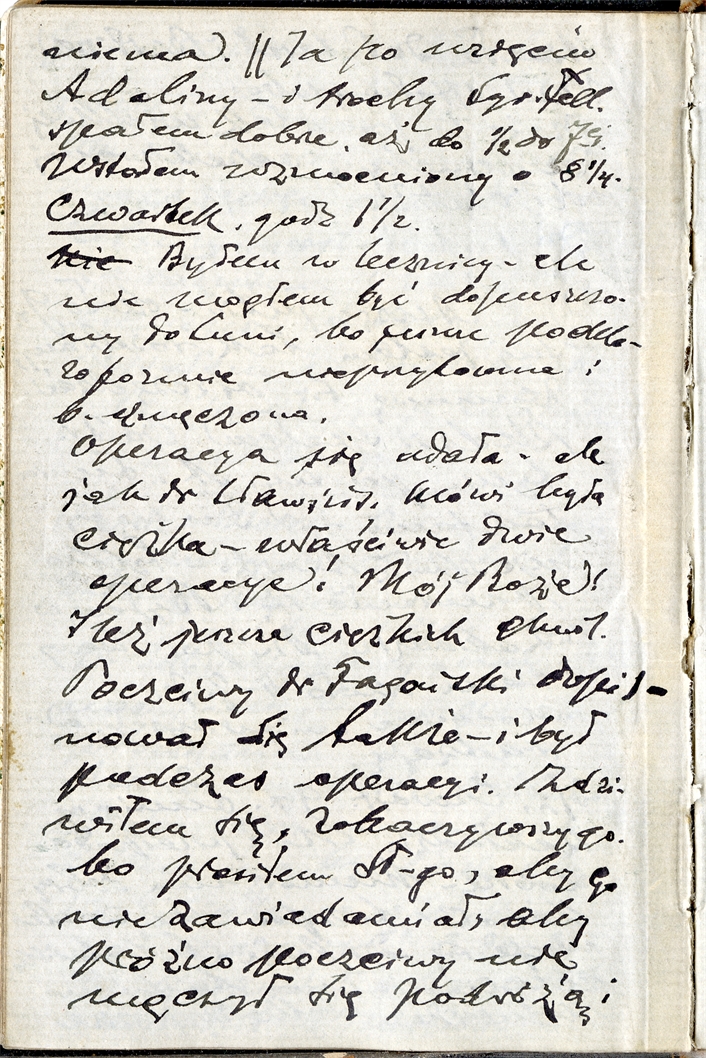 niema). || Ja po wzięciu
Adaliny – i trochy
spałem dobrze, aż do 1/2 do
Wstałem wzmocniony o 8 1/4.
Czwartek, godz 1 1/2.
Nie Byłem w lecznicy – ale
nie mogłem być dopuszczo-
ny do Luni, bo jeszcze podchlo-
roformie nieprzytomna i
b. zmęczona.
Operacya się udała – ale
jak dr mówi była
ciężka – właściwie dwie
operacye! Mój Boże!
Ileż jeszcze ciężkich chwil.
Poczciwy dr dopil-
nował się także – i był
podczas operacyi. Zdzi-
wiłem się, zobaczywszy go.
bo prosiłem St-go, aby go
nie zawiadamiał, aby
próżno poczciwy nie
męczył się podróżą i